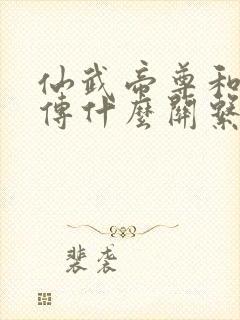 仙武帝尊和
傳什麼關繫
裴袭